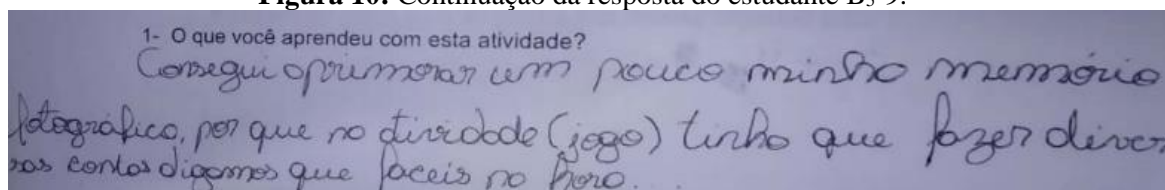 Figura 10: Continuação da resposta do estudante B3 9.
1- O que você aprendeu com esta atividade?
Consegui aprimorar um pouco minha memória
fotográfica, por que na atividade (jogo) tinha que fazer diver
sas contas digamos que faceis na hora.